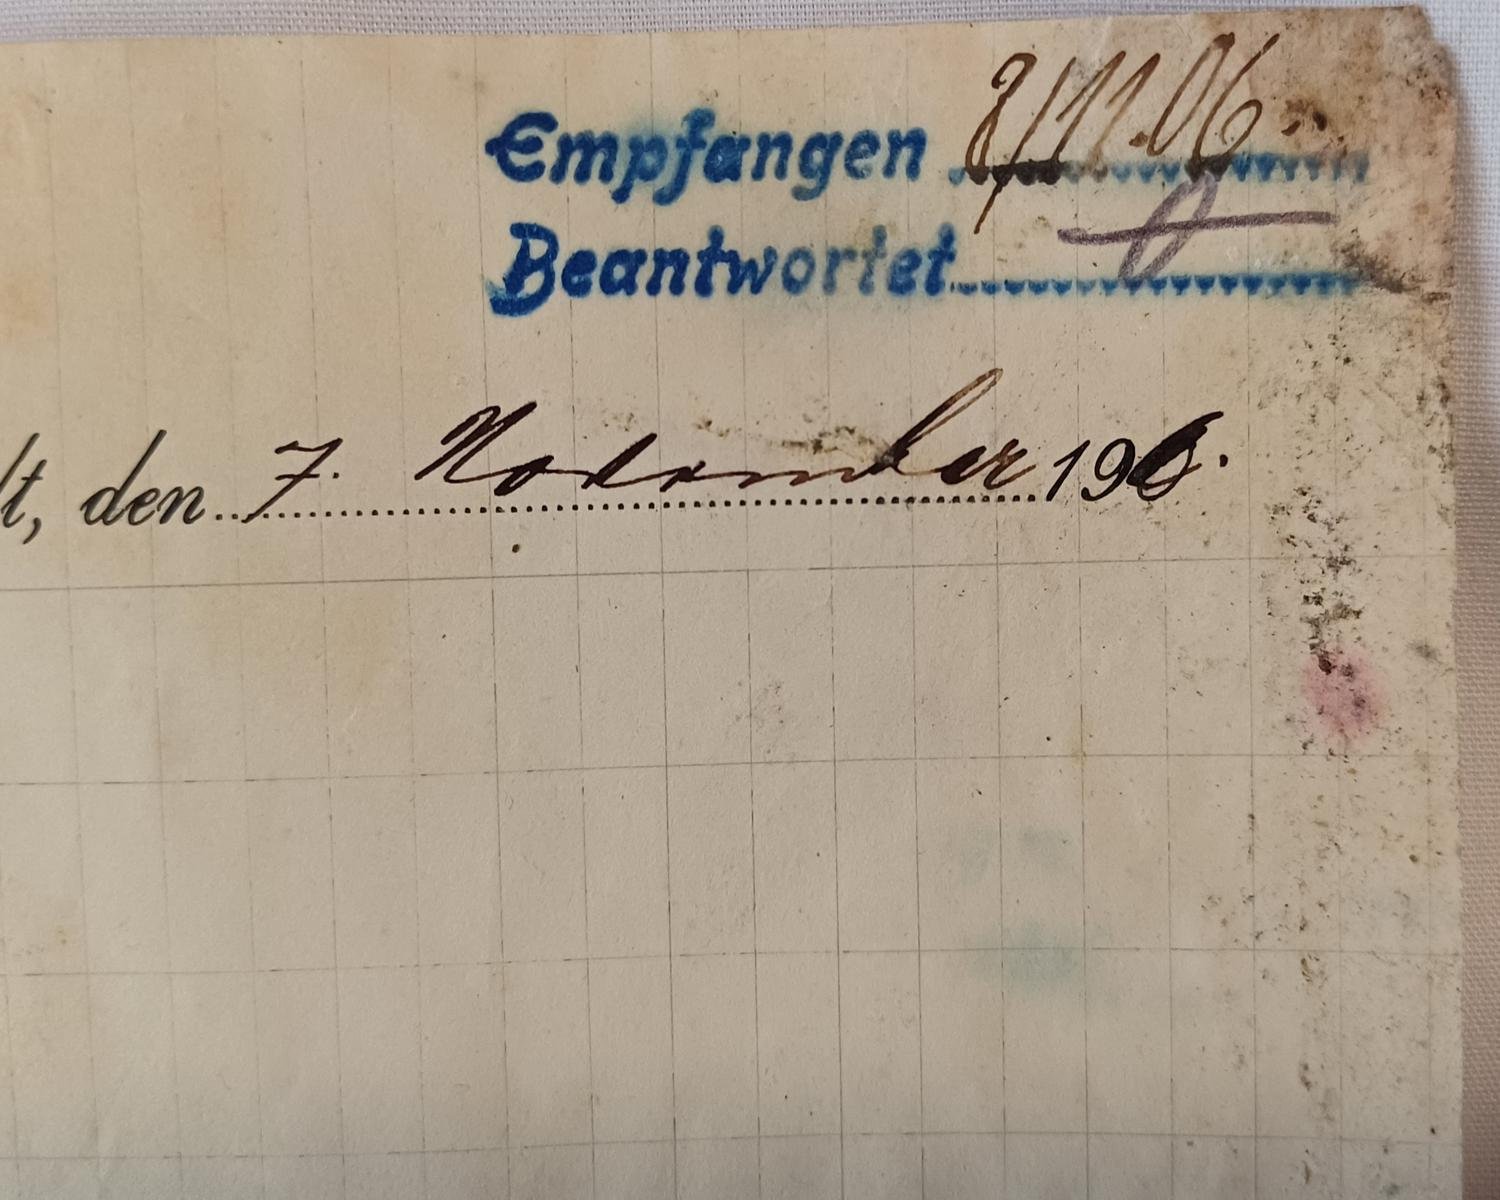 Empfangen 8/11.06.
Beantwortet
lt, den 7. November 1906.